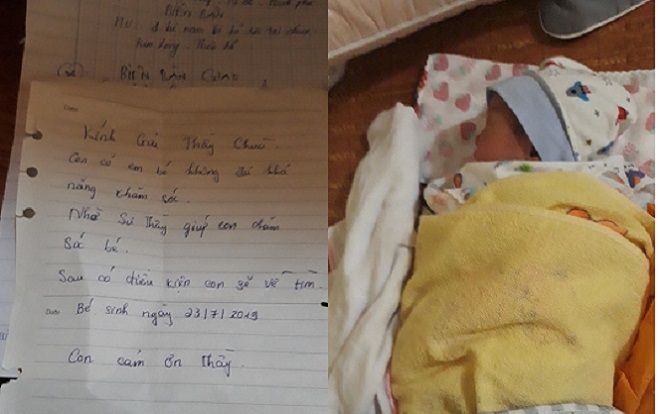 BIÊN BẢN
BIÊN BẢN GIAO
Date:
Kính Gửi Thầy Chùa.
Con có em bé không đủ khả
năng chăm sóc.
Nhờ Sư Thầy giúp con chăm
sóc bé.
Sau có điều kiện con sẽ về tìm.
Date: Bé sinh ngày 23/7/2019
Con cám ơn Thầy.